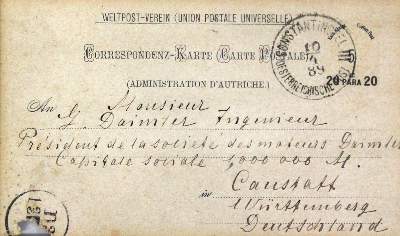 WELTPOST-VEREIN (UNION POSTALE UNIVERSELLE)
CORRESPONDENZ-KARTE (CARTE POSTALE)
(ADMINISTRATION D'AUTRICHE.)
CONSTANTINOPEL
10
89
OESTERREICHISCHE
20 PARA 20
An Monsieur
G. Daimler Ingenieur
Président de la société des moteurs Daimler
Capitale sociale 1,000 000 M.
in Canstatt
Württemberg
Deutschland